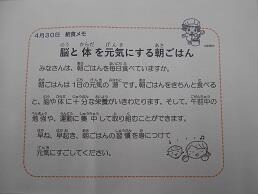 4月30日 給食メモ
脳と体を元気にする朝ごはん
みなさんは、朝ごはんを毎日食べていますか。
朝ごはんは1日の元気の源です。朝ごはんをきちんと食べる
と、脳や体に十分な栄養がいきわたります。そして、午前中の
勉強や、運動に集中して取り組むことができます。
早ね、早起き、朝ごはんの習慣を身につけて
元気にすごしてください。